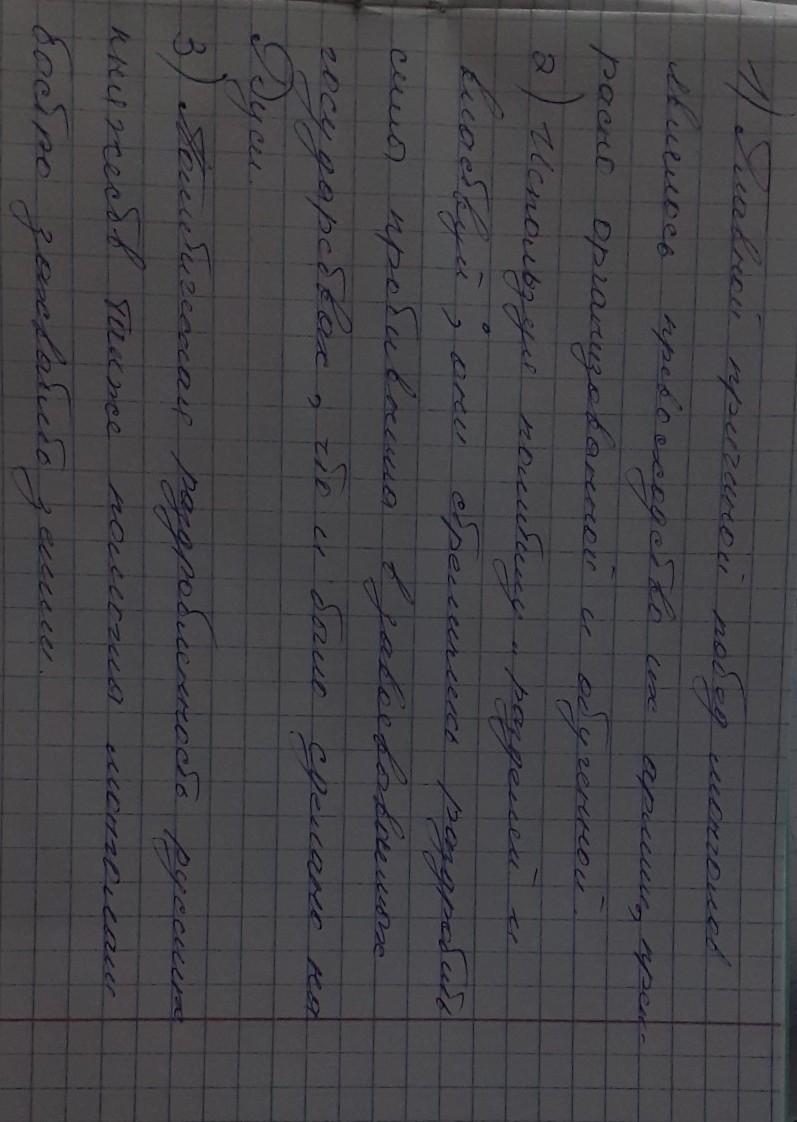 1) Главной причиной побед монголов
являлось превосходство их армии, прек-
расно организованной и обученной.
2) Используя политику „разделяй и
властвуй", они стремились раздробить
силы противника в завоёванных
государствах, что и было сделано на
Руси.
3) Политическая раздробленность русских
княжеств также помогла монголам
быстро захватить земли.